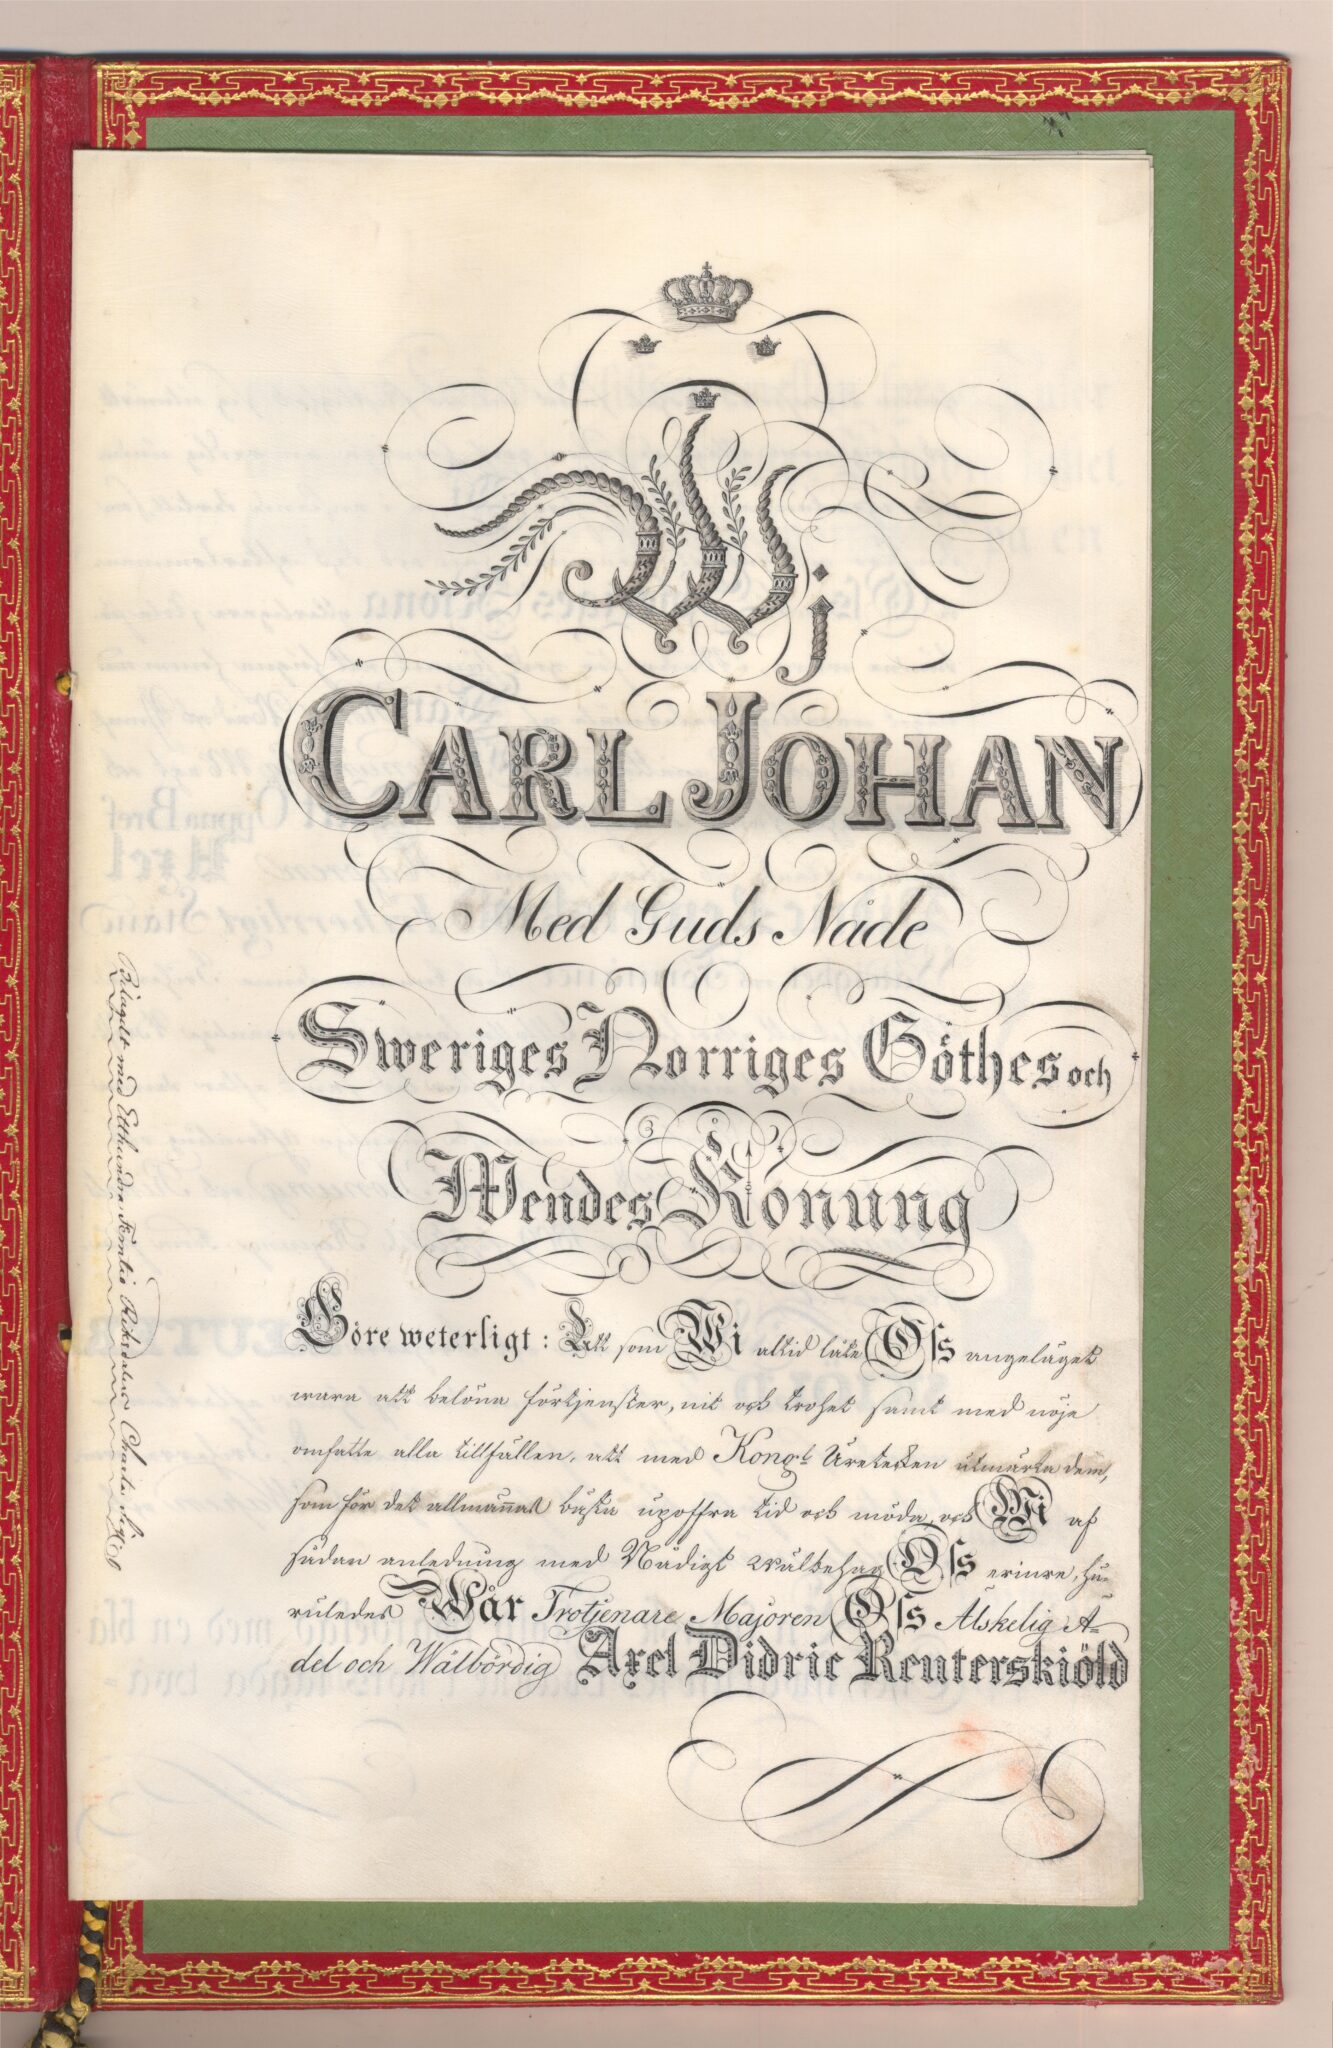 Wj
CARL JOHAN
Med Guds Nåde
Sweriges Norriges Göthes och
Wendes Konung
Göre weterligt: Att som Wi altid låte Oss angeläget
wara att belöna förtjenster, nit och trohet samt med nöje
omfatte alla tillfällen, att med Kongl. Üretecken utmärka dem,
som för det allmännas bästa upoffra tid och möda, och Wi af
sådan anledning med Nådigt wälbehag Oss erinre, hu-
ruledes Wår Trotjenare Majoren Oss Älskelig A=
del och Wälbördig Axel Didric Reuterskiöld
Bilagdt med Etthundra Femtio Riksdaler Charta Sigil